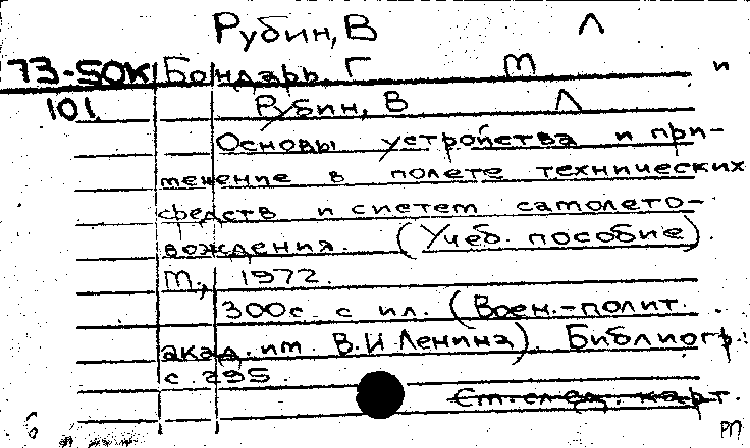 Рубин, В Л
73-50К Бондарь, Г М и
101 Рубин, В Л
Основы устройства и при-
менение в полете технических
средств и систем самолето-
вождения. (Учеб. пособие).
М., 1972.
300с. с ил. (Воен.-полит.
акад. им. В.И Ленина). Библиогр.:
с. 295.
См. след. карт.
РП